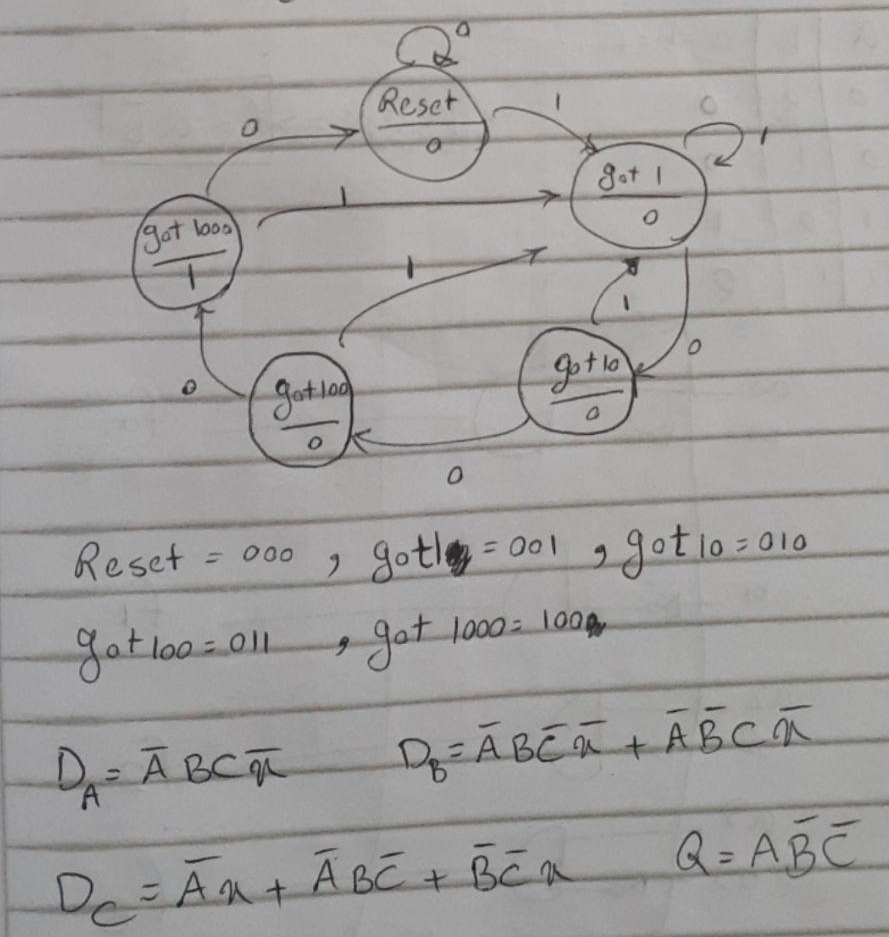 0
Reset
0
0
1
1
got 1
0
1
got 1000
1
1
1
0
0
got 10
0
got 100
0
0
Reset = 000 , got1 = 001 , got 10 = 010
got 100 = 011 , got 1000 = 100
D_A = A̅ B C x̅    D_B = A̅ B C̅ x̅ + A̅ B̅ C x̅
D_C = A̅ x + A̅ B C̅ + B̅ C̅ x    Q = A B̅ C̅